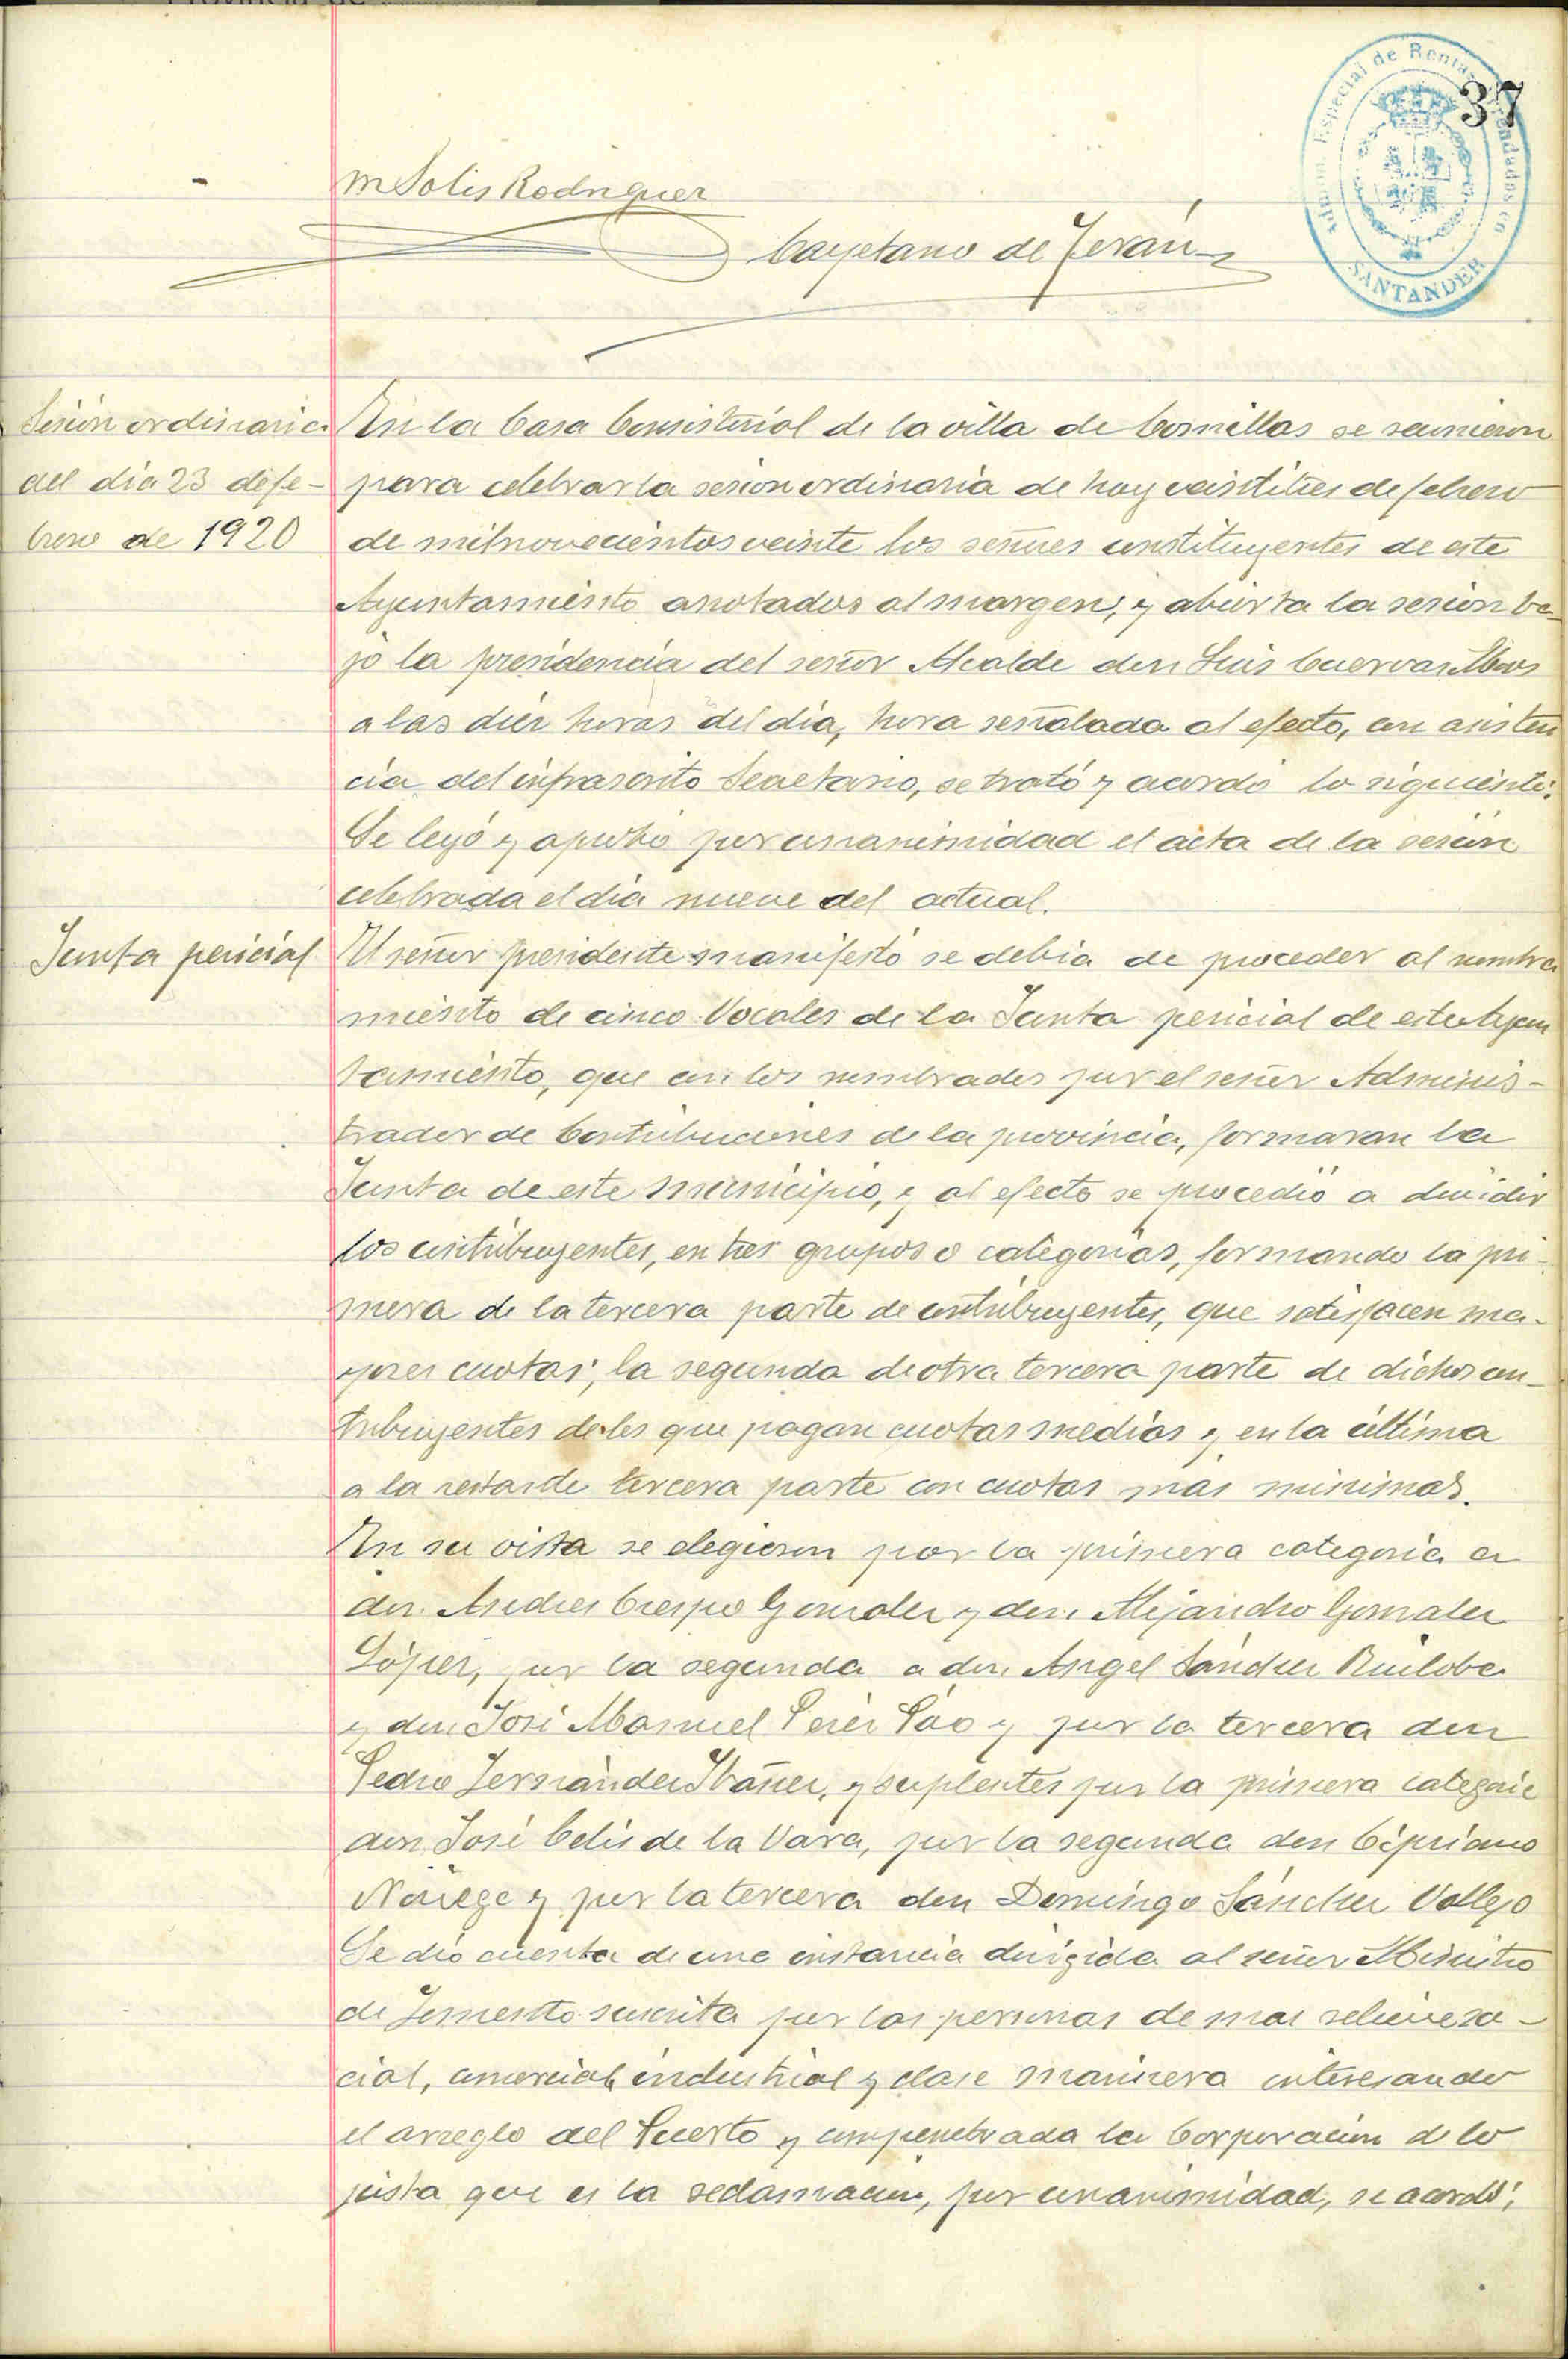 37
Especial de Rentas
SANTANDER
M Solis Rodriguez
Cayetano de Terán
Sesión ordinaria
del dia 23 de fe-
brero de 1920
En la Casa Consistorial de la villa de Comillas se reunieron
para celebrar la sesion ordinaria de hoy veintitres de febrero
de mil novecientos veinte los señores constituyentes de este
Ayuntamiento anotados al margen, y abierta la sesion ba-
jo la presidencia del señor Alcalde don Luis Cuervas Mons
a las diez horas del dia, hora señalada al efecto, con asisten
cia del infrascrito Secretario, se trató y acordó lo siguiente:
Se leyó y aprobó por unanimidad el acta de la sesion
celebrada el dia nueve del actual.
Junta pericial
El señor presidente manifestó se debia de proceder al nombra
miento de cinco Vocales de la Junta pericial de este Ayun
tamiento, que con los nombrados por el señor Adminis-
trador de Contribuciones de la provincia, formaran la
Junta de este municipio, y al efecto se procedió a dividir
los contribuyentes, en tres grupos o categorias, formando la pri-
mera de la tercera parte de contribuyentes, que satisfacen ma-
yores cuotas; la segunda de otra tercera parte de dichos con-
tribuyentes de los que pagan cuotas medias y en la última
a la restante tercera parte con cuotas mas minimas.
En su vista se eligieron por la primera categoria a
don Andres Crespo Gonzalez y don Alejandro Gonzalez
López, por la segunda a don Angel Sánchez Ruiloba
y don José Manuel Perez y por la tercera don
Pedro Fernández Ibáñez, y suplentes por la primera categoria
don José Celis de la Vara, por la segunda don Cipriano
Noriega y por la tercera don Domingo Sánchez Vallejo
Se dio cuenta de una instancia dirigida al señor Ministro
de Fomento suscrita por las personas de mas relieve so-
cial, comercial, industrial y clase marinera interesando
el arreglo del Puerto y compenetrada la Corporacion de lo
justa que es la reclamacion, por unanimidad, se acordó;